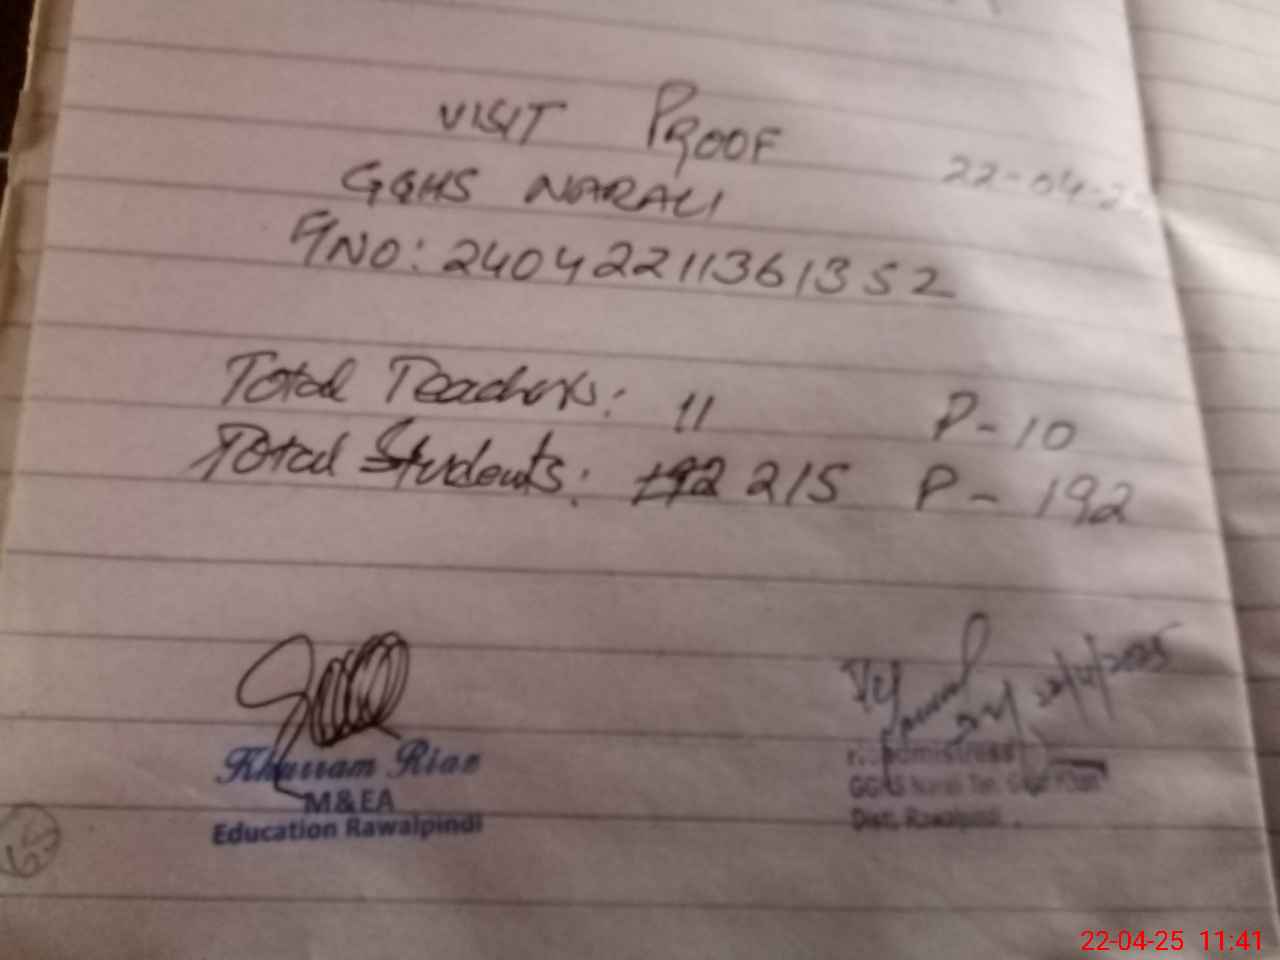 VISIT PROOF
22-04-25
GGHS NARALI
NO: 2404221136 1352
Total Teachers: 11 P-10
Total Students: 192 215 P- 192
Khurram Riaz
M&EA
Education Rawalpindi
22/4/2025
Headmistress
GGHS Narali Teh. Gujar Khan
Distt. Rawalpindi
65
22-04-25 11:41